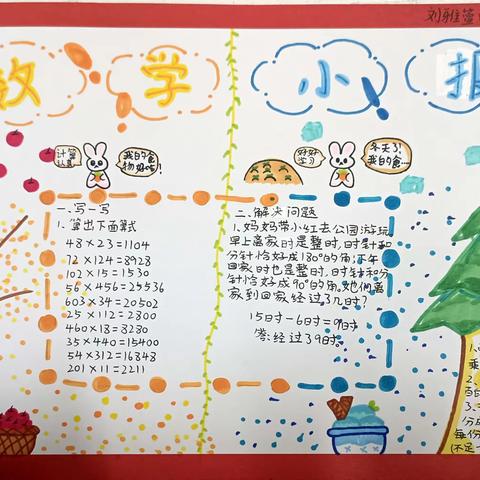 刘雅萱
数学小报
计算
认真
我的食
物好吃!
好好
学习
冬天了,
我的食...
一、写一写
1、算出下面算式
48×23=1104
72×124=8928
102×15=1530
56×456=25536
603×34=20502
25×112=2800
460×18=8280
35×440=15400
54×312=16848
201×11=2211
二、解决问题
1、妈妈带小红去公园游玩
早上离家时是整时,时针和
分针恰好成180°的角;下午
回家时也是整时,时针和分
针恰好成90°的角。她们离
家到回家经过了几时?
15时-6时=9时
答:经过了9时。
1、
乘
2、
百的
3、
分成
每份
(不足一